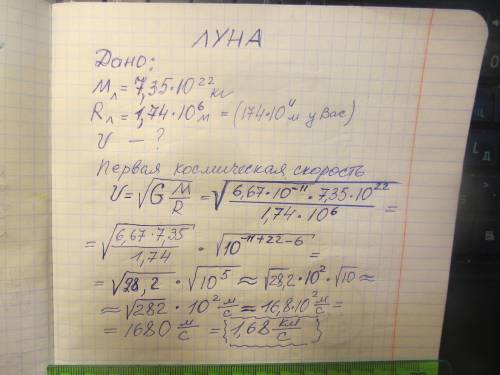 ЛУНА
Дано:
Mл = 7,35·10²² кг
Rл = 1,74·10⁶ м = (174·10⁴ м у Вас)
υ — ?
Первая космическая скорость
υ = √(G M/R) = √(6,67·10⁻¹¹·7,35·10²² / 1,74·10⁶) =
= √(6,67·7,35 / 1,74) · √(10⁻¹¹⁺²²⁻⁶) =
= √28,2 · √10⁵ ≈ √28,2·10²·√10 ≈
≈ √282 · 10² м/с ≈ 16,8·10² м/с =
= 1680 м/с = {1,68 км/с}